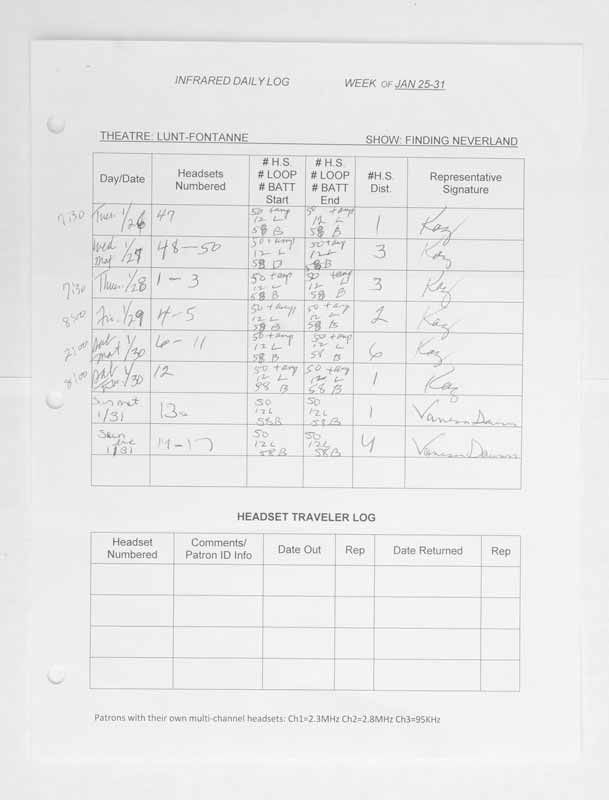 INFRARED DAILY LOG WEEK OF JAN 25-31
THEATRE: LUNT-FONTANNE SHOW: FINDING NEVERLAND
Day/Date Headsets Numbered # H.S. # LOOP # BATT Start # H.S. # LOOP # BATT End #H.S. Dist. Representative Signature
7:30 Tues. 1/26 47 50 + amp 12 L 58 B 50 + amp 12 L 58 B 1 Kay
Wed 1/27 48-50 50 + amp 12 L 58 B 50 + amp 12 L 58 B 3 Kay
7:30 Thurs. 1/28 1-3 50 + amp 12 L 58 B 50 + amp 12 L 58 B 3 Kay
8:00 Fri. 1/29 4-5 50 + amp 12 L 58 B 50 + amp 12 L 58 B 2 Kay
2:00 Sat mat 1/30 6-11 50 + amp 12 L 58 B 50 + amp 12 L 58 B 6 Kay
8:00 Sat Eve. 1/30 12 50 + amp 12 L 58 B 50 + amp 12 L 58 B 1 Kay
Sun mat 1/31 13 50 12L 58B 50 12L 58B 1 Vanessa
Sun eve 1/31 14-17 50 12L 58B 50 12L 58B 4 Vanessa
HEADSET TRAVELER LOG
Headset Numbered Comments/ Patron ID Info Date Out Rep Date Returned Rep
Patrons with their own multi-channel headsets: Ch1=2.3MHz Ch2=2.8MHz Ch3=95KHz